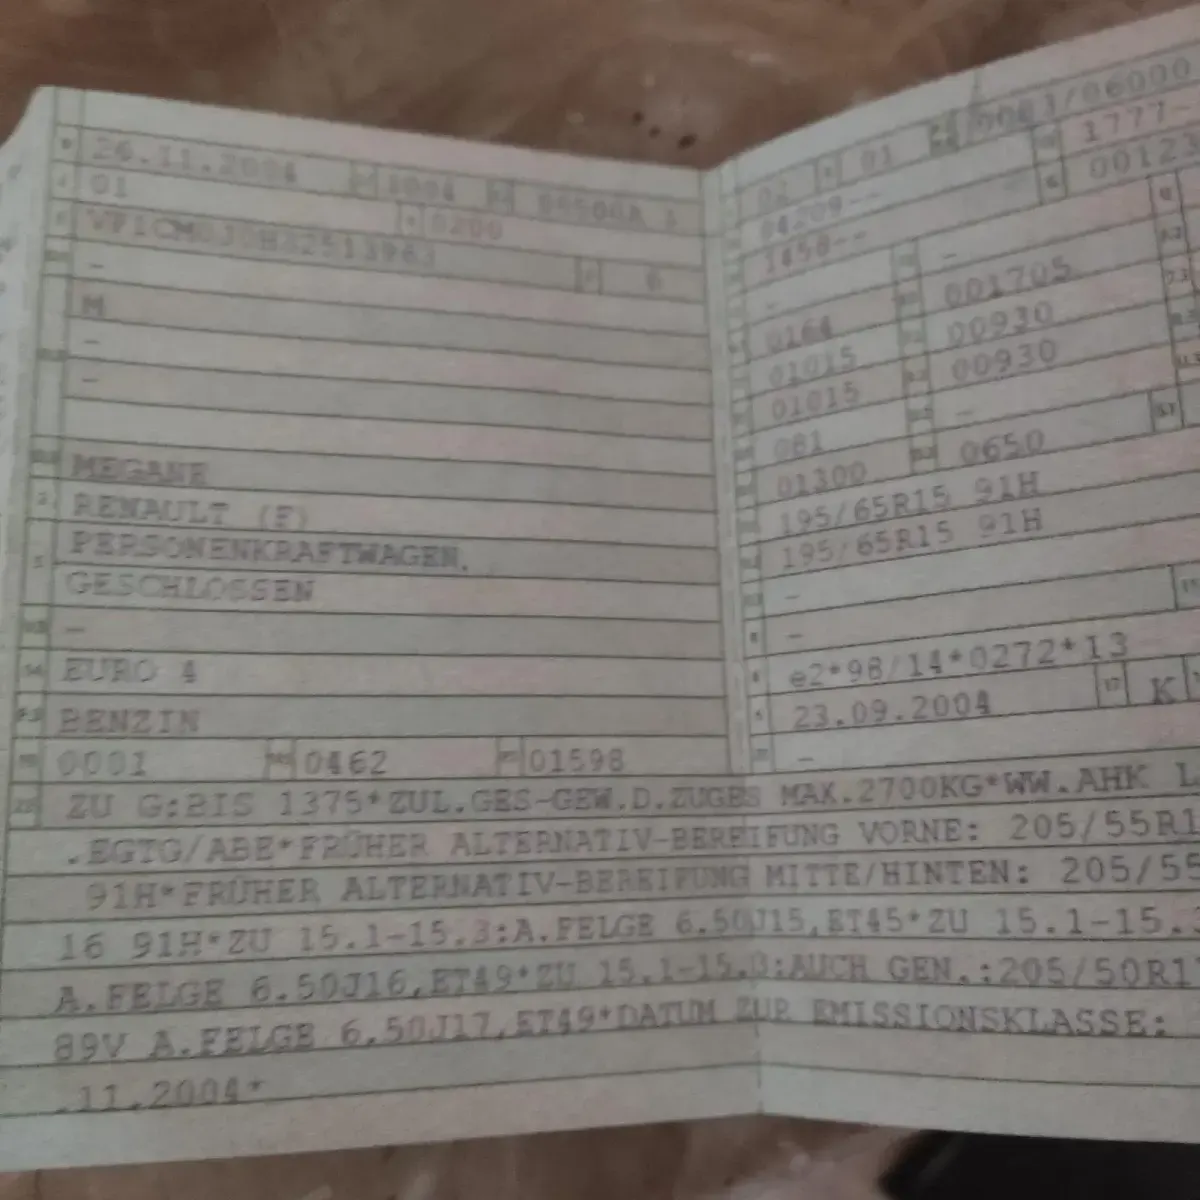 26.11.2004
01 0200
-
M
-
-
MEGANE
RENAULT (F)
PERSONENKRAFTWAGEN,
GESCHLOSSEN
-
EURO 4
BENZIN
0001 0462 01598
02 01
04209--
1777-
1458--
00123
-
-
0164 001705
01015 00930
01015 00930
081 -
01300 0650
195/65R15 91H
195/65R15 91H
-
-
e2*98/14*0272*13
23.09.2004 17 K
-
ZU G:BIS 1375*ZUL.GES-GEW.D.ZUGES MAX.2700KG*WW.AHK L
.EGTG/ABE*FRÜHER ALTERNATIV-BEREIFUNG VORNE: 205/55R1
91H*FRÜHER ALTERNATIV-BEREIFUNG MITTE/HINTEN: 205/55
16 91H*ZU 15.1-15.3:A.FELGE 6.50J15,ET45*ZU 15.1-15.
A.FELGE 6.50J16,ET49*ZU 15.1-15.3:AUCH GEN.:205/50R1
89V A.FELGE 6.50J17,ET49*DATUM ZUR EMISSIONSKLASSE:
.11.2004*